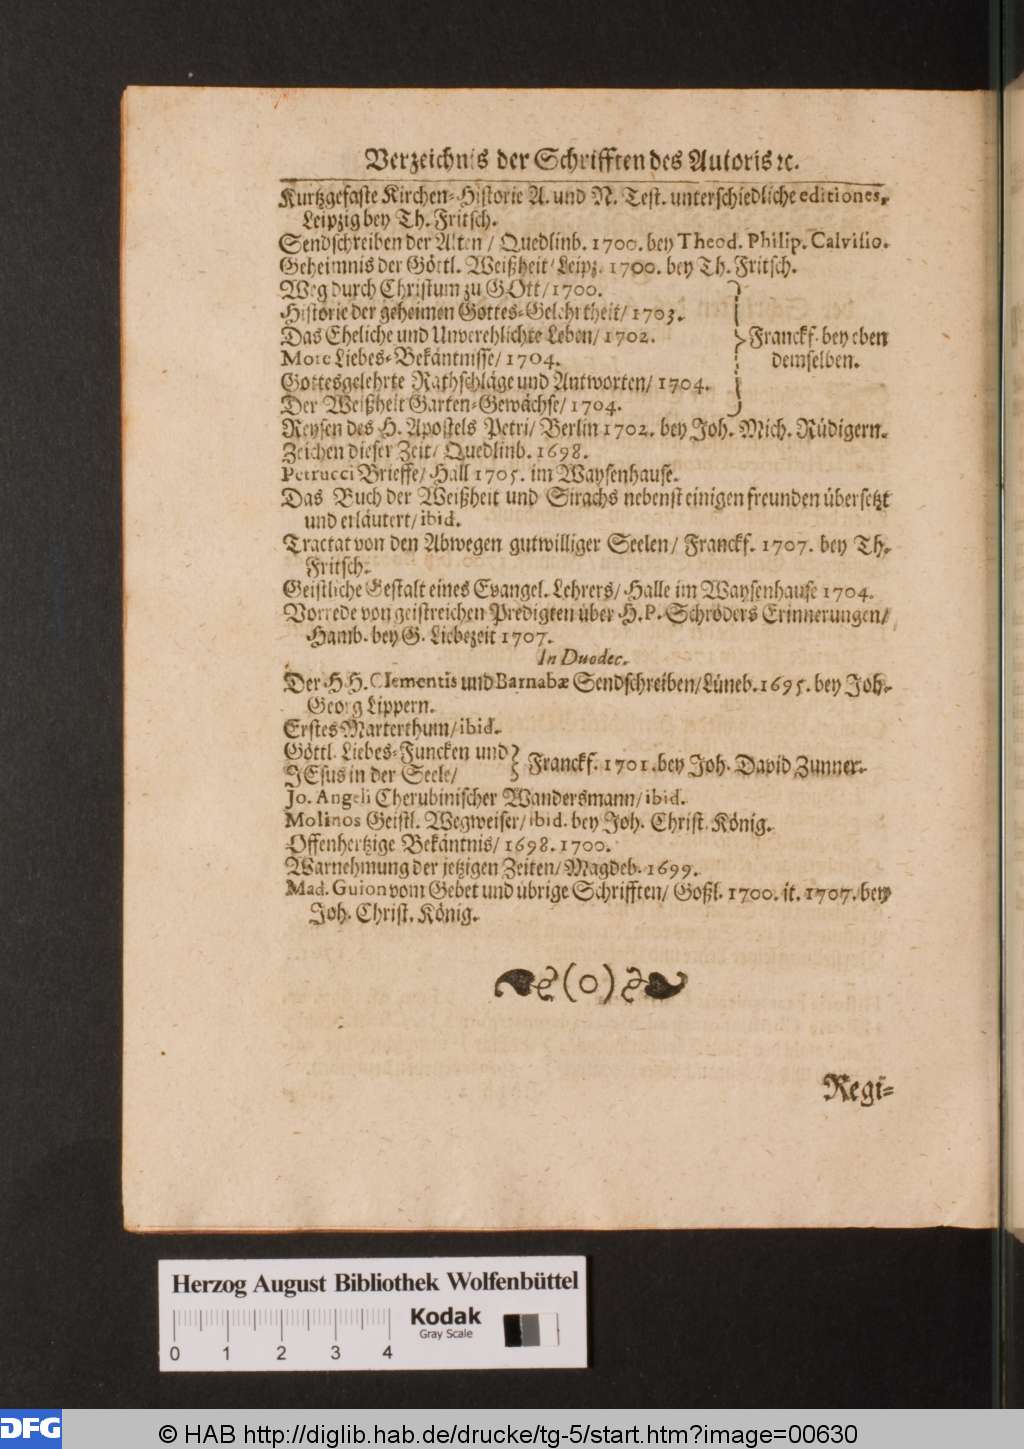 Verzeichnis der Schrifften des Autoris ꝛc.
Kurtzgefaste Kirchen-Historie A. und N. Test. unterschiedliche editiones,
Leipzig bey Th. Fritsch.
Sendschreiben der Alten / Quedlinb. 1700. bey Theod. Philip. Calvisio.
Geheimnis der Göttl. Weißheit / Leipz. 1700. bey Th. Fritsch.
Weg durch Christum zu GOtt / 1700.
Historie der geheimen Gottes-Gelehrtheit / 1703.
Das Eheliche und Unverehlichte Leben / 1702.
Morc Liebes-Bekäntnisse / 1704.
Gottesgelehrte Rathschläge und Antworten / 1704.
Der Weißheit Garten-Gewächse / 1704.
Franckf. bey eben
demselben.
Reysen des H. Apostels Petri / Berlin 1702. bey Joh. Mich. Rüdigern.
Zeichen dieser Zeit / Quedlinb. 1698.
Petrucci Brieffe / Hall 1705. im Waysenhause.
Das Buch der Weißheit und Sirachs nebenst einigen freunden übersetzt
und erläutert / ibid.
Tractat von den Abwegen gutwilliger Seelen / Franckf. 1707. bey Th.
Fritsch.
Geistliche Gestalt eines Evangel. Lehrers / Halle im Waysenhause 1704.
Vorrede von geistreichen Predigten über H. P. Schröders Erinnerungen /
Hamb. bey G. Liebezeit 1707.
In Duodec.
Der H H. Clementis und Barnabæ Sendschreiben / Lüneb. 1695. bey Joh.
Georg Lippern.
Erstes Marterthum / ibid.
Göttl. Liebes-Funcken und
JEsus in der Seele /
Franckf. 1701. bey Joh. David Zunner.
Jo. Angeli Cherubinischer Wandersmann / ibid.
Molinos Geistl. Wegweiser / ibid. bey Joh. Christ. König.
Offenhertzige Bekäntnis / 1698. 1700.
Warnehmung der jetzigen Zeiten / Magdeb. 1699.
Mad. Guion vom Gebet und übrige Schrifften / Goßl. 1700. it. 1707. bey
Joh. Christ. König.
(o)
Regi-
Herzog August Bibliothek Wolfenbüttel
Kodak
Gray Scale
0 1 2 3 4
DFG
© HAB http://diglib.hab.de/drucke/tg-5/start.htm?image=00630